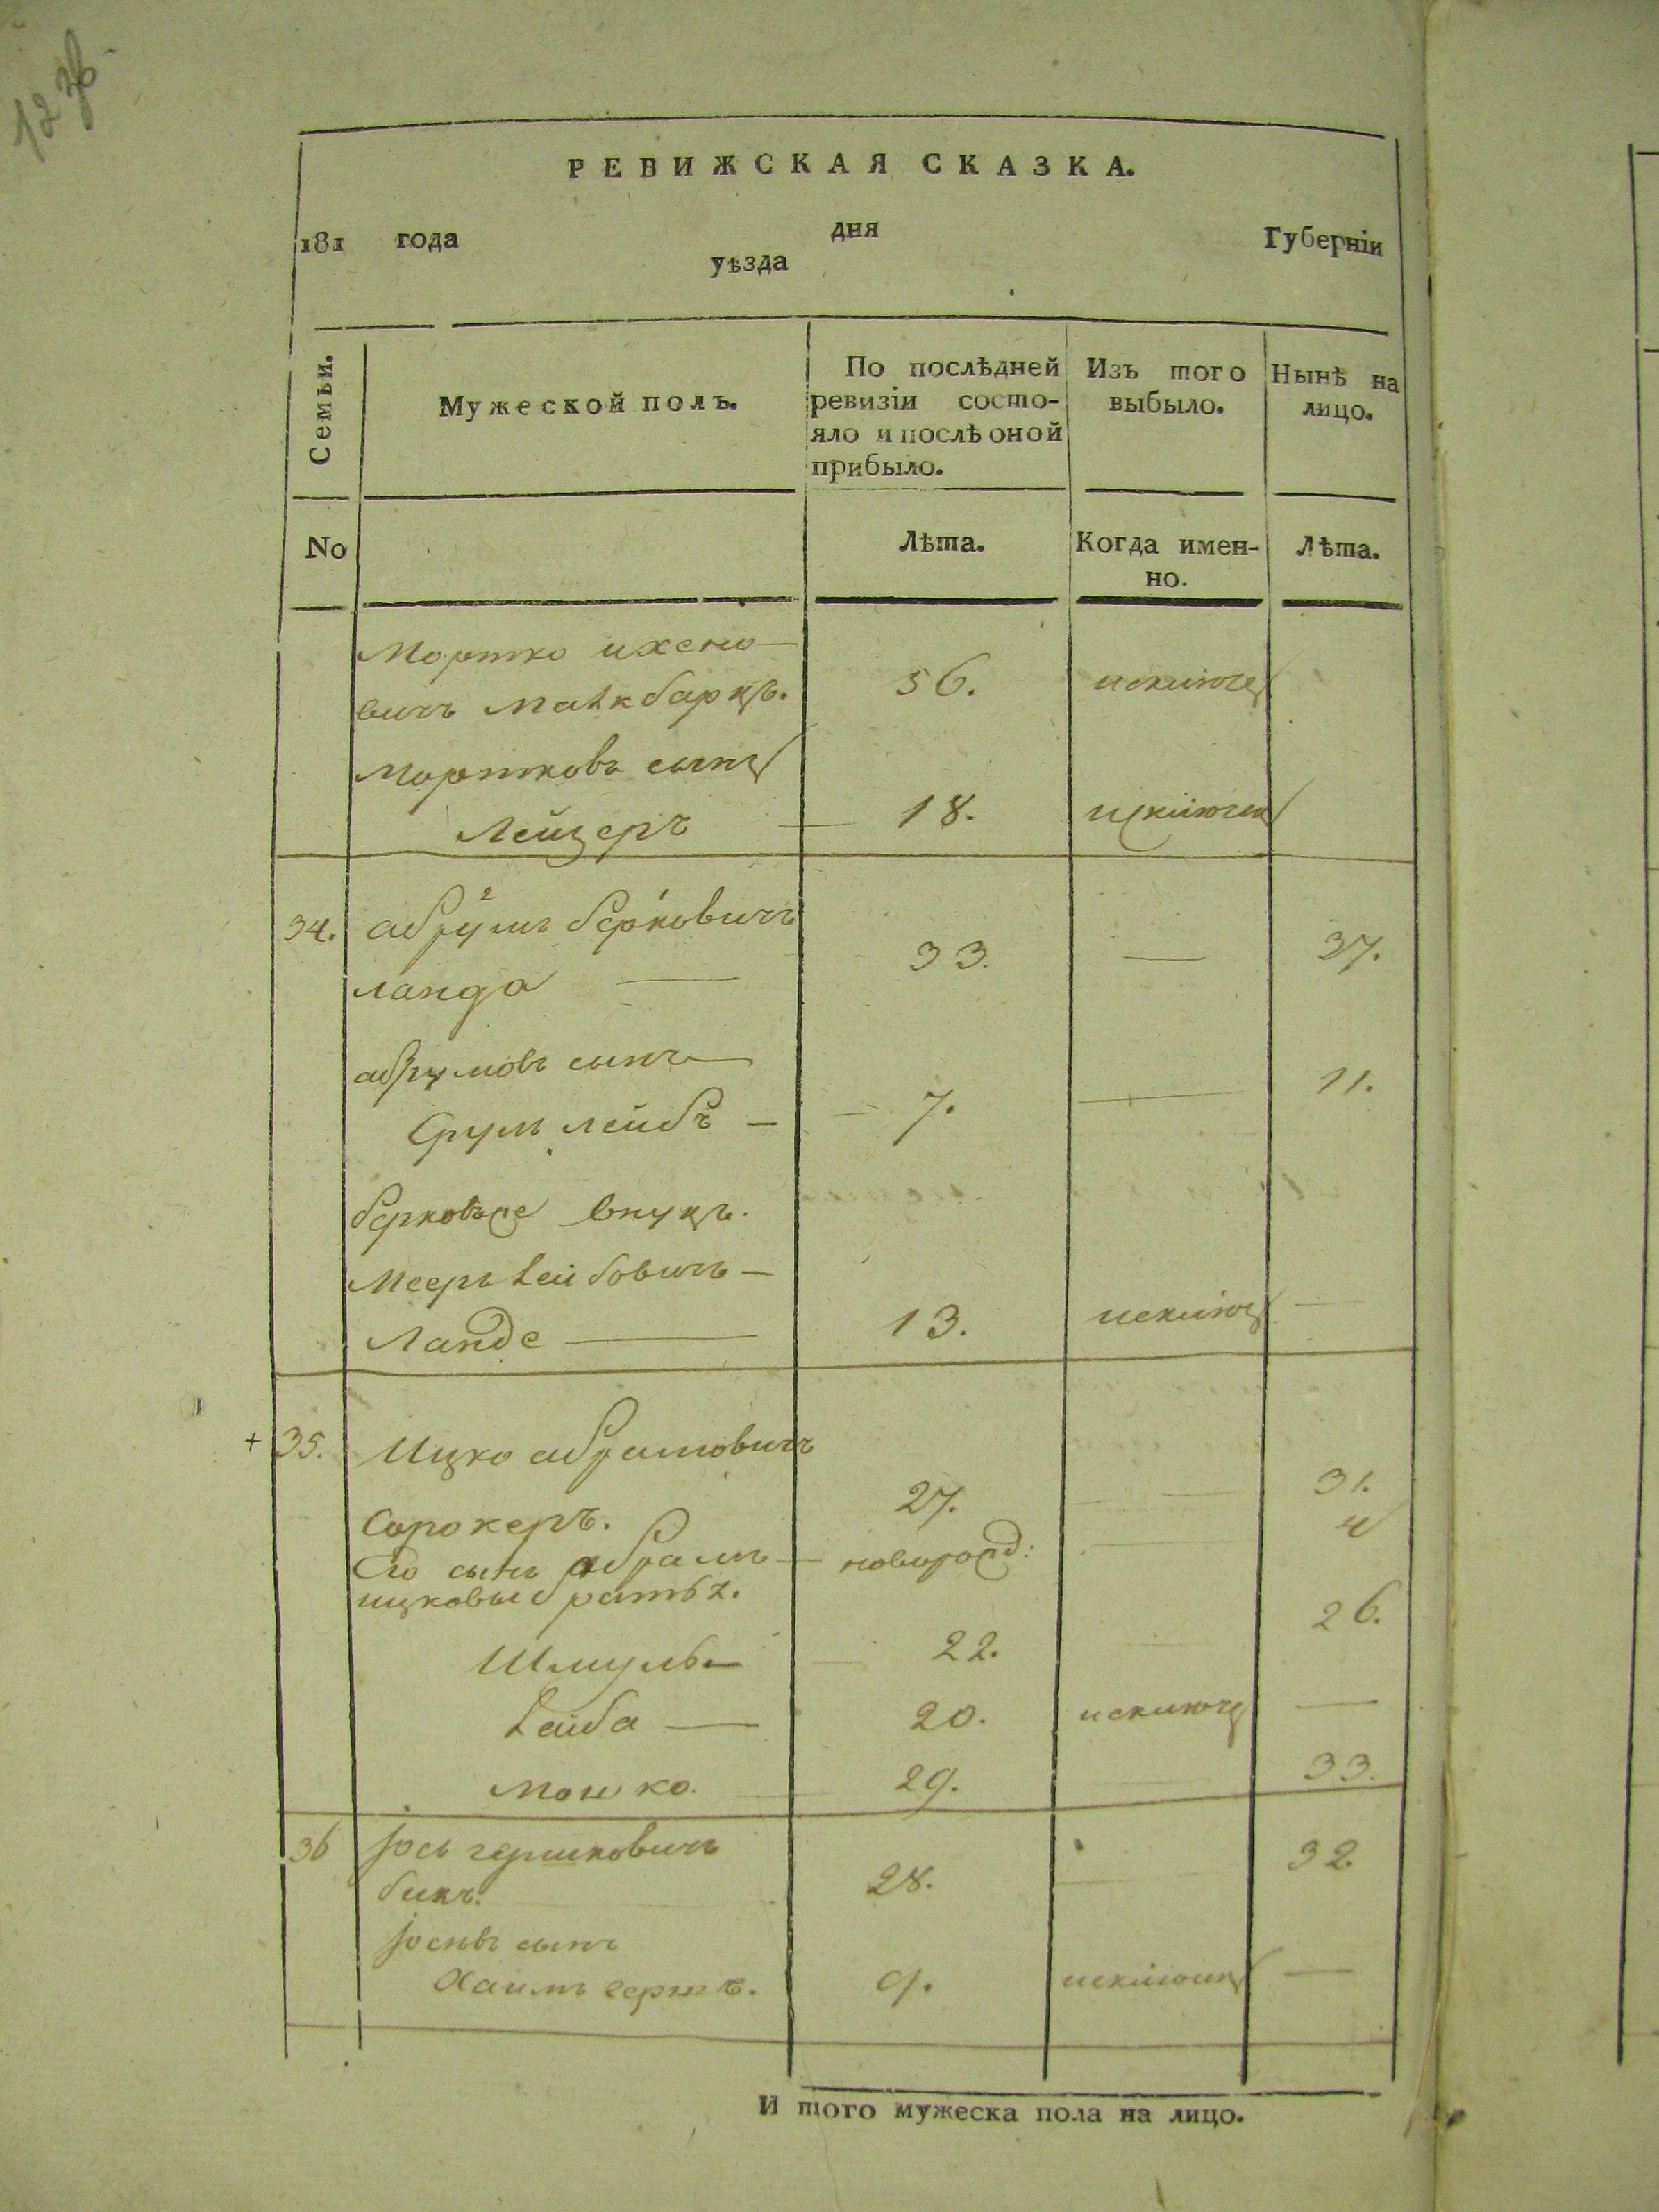 РЕВИЖСКАЯ СКАЗКА.
181 года дня Губерніи
уѣзда
Семьи.
Мужеской полъ.
По послѣдней ревизіи состо-
яло и послѣ оной
прибыло.
Изъ того
выбыло.
Нынѣ на
лицо.
No
Лѣта.
Когда имен-
но.
Лѣта.
Мортко
вичъ 56.
Мортковъ сынъ
Лейзеръ 18.
34. абрумъ берковичъ
ланда — 33. — 37.
абрумовъ сынъ —
Срулъ лейбъ — 7. — 11.
берковъ внукъ.
Мееръ Лейбовичъ —
Ланде — 13. исключ —
+ 35. Ицко абрамовичъ
Сорокеръ. 27. — 31.
Его сынъ абрамъ — новорожд: — 4
ицковы братья.
Шмуль — 22. — 26.
Лейба — 20. исключ —
Мошко. 29. — 33.
36 Іось гершковичъ
бикъ. 28. — 32
Іосевъ сынъ
Хаимъ 9. —
И того мужеска пола на лицо.